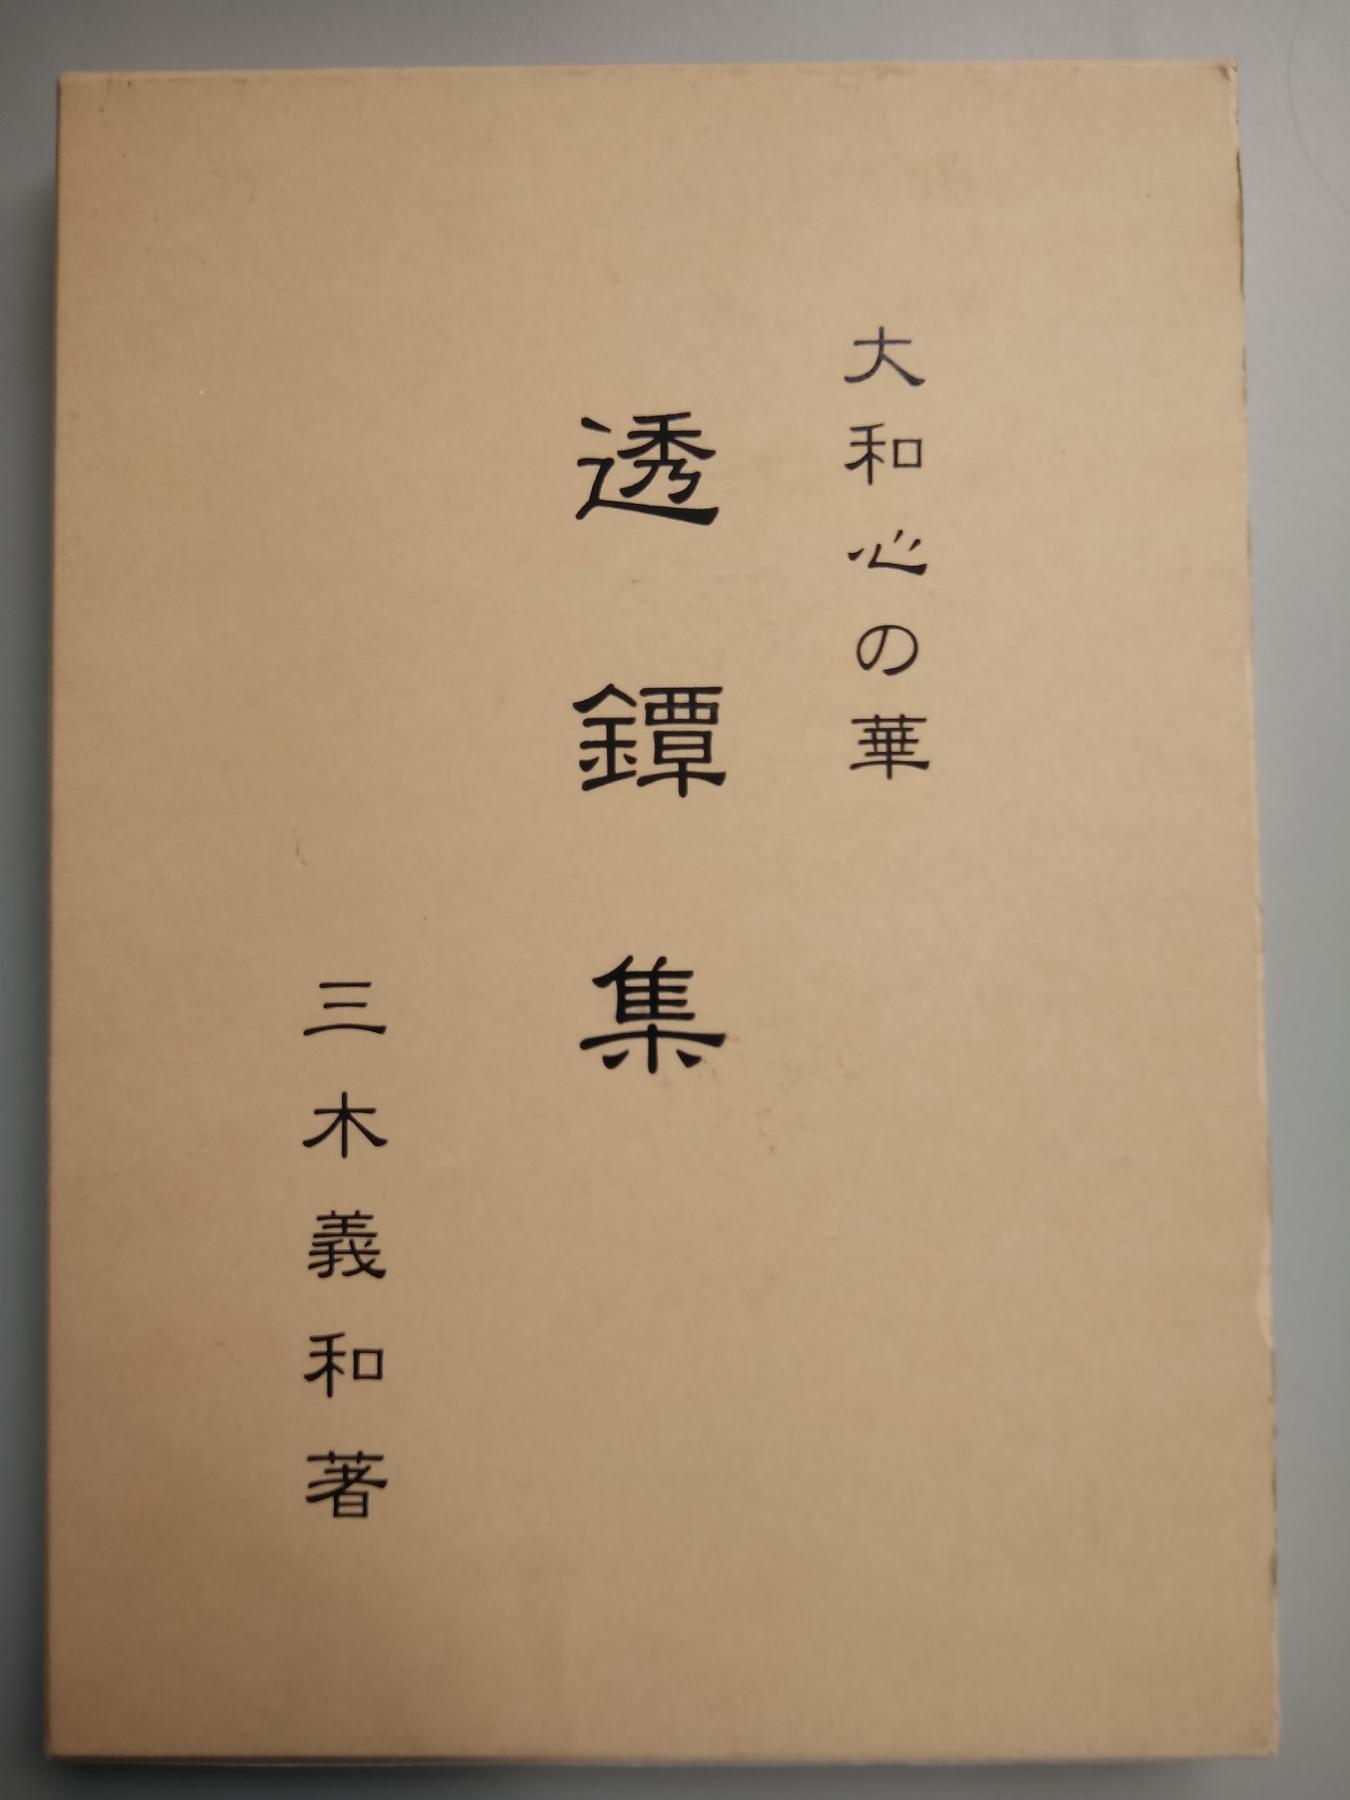 大和心の華
透鐔集
三木義和著